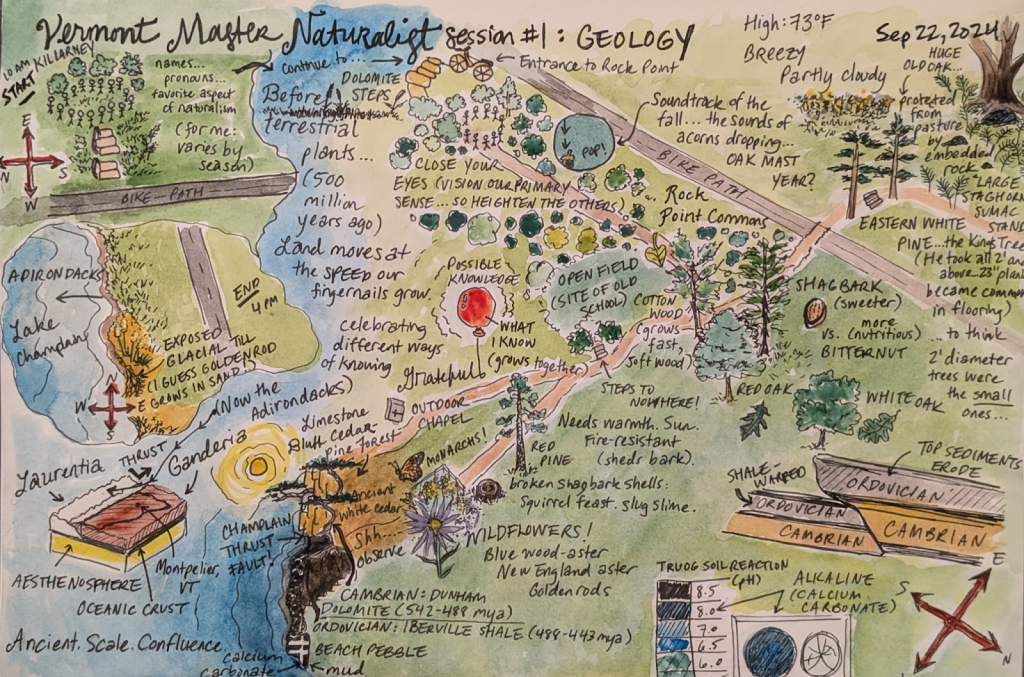 Vermont Master Naturalist session #1: GEOLOGY
High: 73°F
BREEZY
Partly cloudy
Sep 22, 2024
10 AM KILLARNEY
START
names...
pronouns...
favorite aspect
of naturalism
(for me:
varies by
season)
E
N
S
W
BIKE PATH
continue to...
DOLOMITE
STEPS
Entrance to Rock Point
Before
terrestrial
plants...
(500
million
years ago)
Land moves at
the SPEED our
fingernails grow.
CLOSE YOUR
EYES (VISION OUR PRIMARY
SENSE... SO HEIGHTEN THE OTHERS)
POP!
Soundtrack of the
fall... the sounds of
acorns dropping...
OAK MAST
YEAR?
BIKE PATH
Rock
Point Commons
HUGE
OLD OAK...
protected
from
pasture
by
embedded
rock
"LARGE
STAGHORN
SUMAC
STAND
EASTERN WHITE
PINE... the King's Tree
(He took all 2' and
above. 23" planks
became common
in flooring)
...to think
2' diameter
trees were
the small
ones...
ADIRONDACKS
Lake
Champlain
END
4 PM
EXPOSED
GLACIAL TILL
(I GUESS GOLDENROD
GROWS IN SAND!)
N
W
E
S
POSSIBLE
KNOWLEDGE
WHAT
I KNOW
(grows together)
celebrating
different ways
of knowing
grateful
OPEN FIELD
(SITE OF OLD
SCHOOL)
COTTON
WOOD
(grows
fast,
soft wood)
SHAGBARK
(sweeter)
vs. (more nutritious)
BITTERNUT
RED OAK
WHITE OAK
STEPS TO
NOWHERE!
(Now the
Adirondacks)
Laurentia
THRUST
Ganderia
Limestone
Bluff Cedar
Pine Forest
OUTDOOR
CHAPEL
MONARCHS!
RED
PINE
Needs warmth. Sun.
Fire-resistant
(sheds bark).
broken shagbark shells:
Squirrel feast. slug slime.
Ancient
white cedar
Shh...
observe
CHAMPLAIN
THRUST
FAULT!
AESTHENOSPHERE
Montpelier,
VT
OCEANIC CRUST
WILDFLOWERS!
Blue wood-aster
New England aster
Goldenrods
CAMBRIAN: DUNHAM
DOLOMITE (542-488 mya)
ORDOVICIAN: IBERVILLE SHALE (488-443 mya)
BEACH PEBBLE
calcium
carbonate
mud
Ancient. Scale. Confluence.
SHALE
WARPED
TOP SEDIMENTS
ERODE
ORDOVICIAN
ORDOVICIAN
CAMBRIAN
CAMBRIAN
TRUOG SOIL REACTION
(pH)
8.5
8.0
7.0
6.5
6.0
ALKALINE
(CALCIUM
CARBONATE)
E
S
N